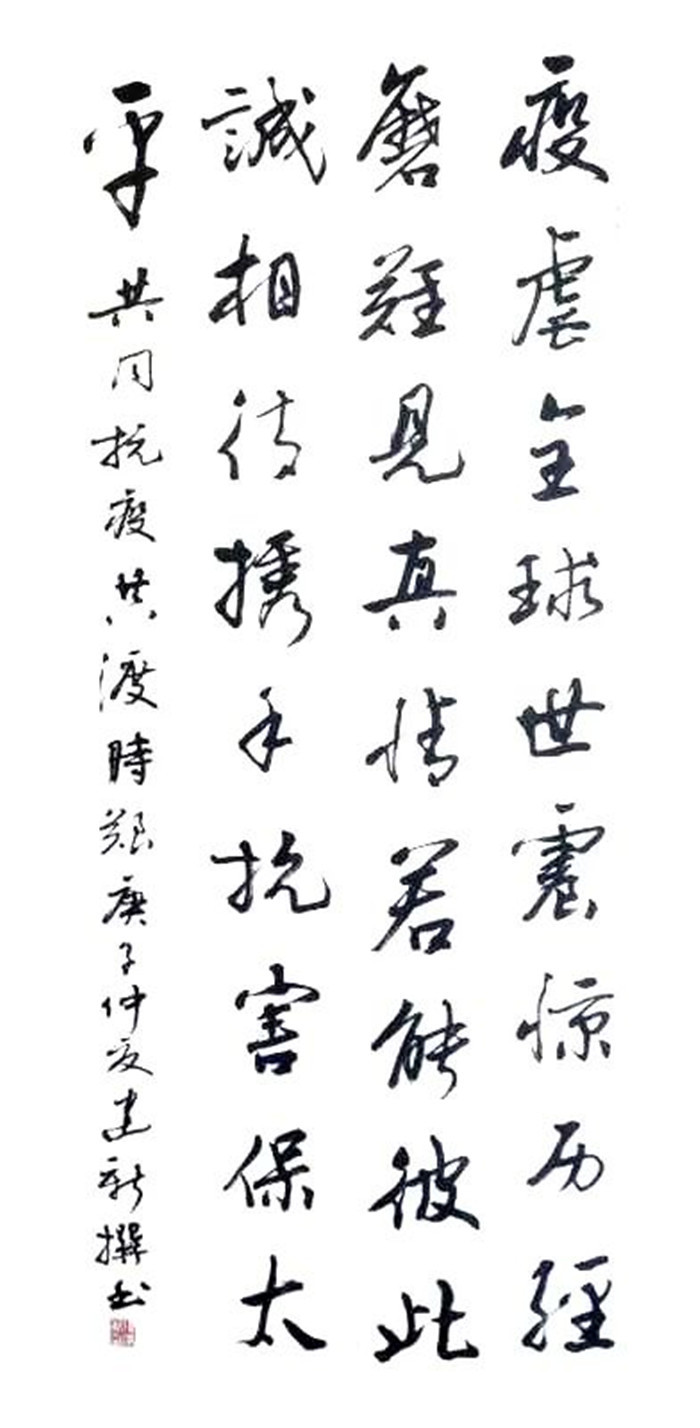 疫虐全球世震惊历經
磨難見真情若能彼此
誠相待携手抗害保太
平共同抗疫共渡時艱庚子仲夏建新撰书